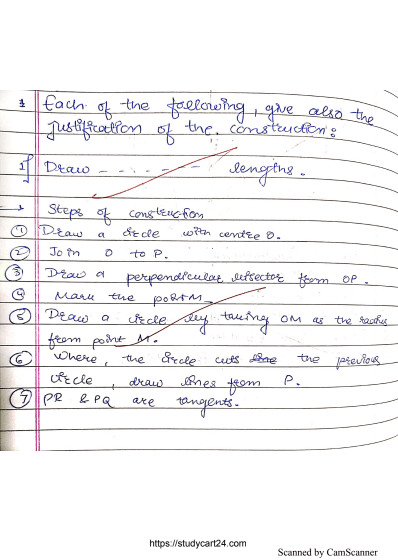 1 Each of the following, give also the
justification of the construction:
1] Draw - - - - - - lengths.
Steps of construction
① Draw a circle with centre O.
② Join O to P.
③ Draw a perpendicular bisector from OP.
④ Mark the point M
⑤ Draw a circle by taking OM as the radius
from point M.
⑥ Where, the circle cuts the the previous
circle, draw lines from P.
⑦ PR & PQ are tangents.
https://studycart24.com
Scanned by CamScanner